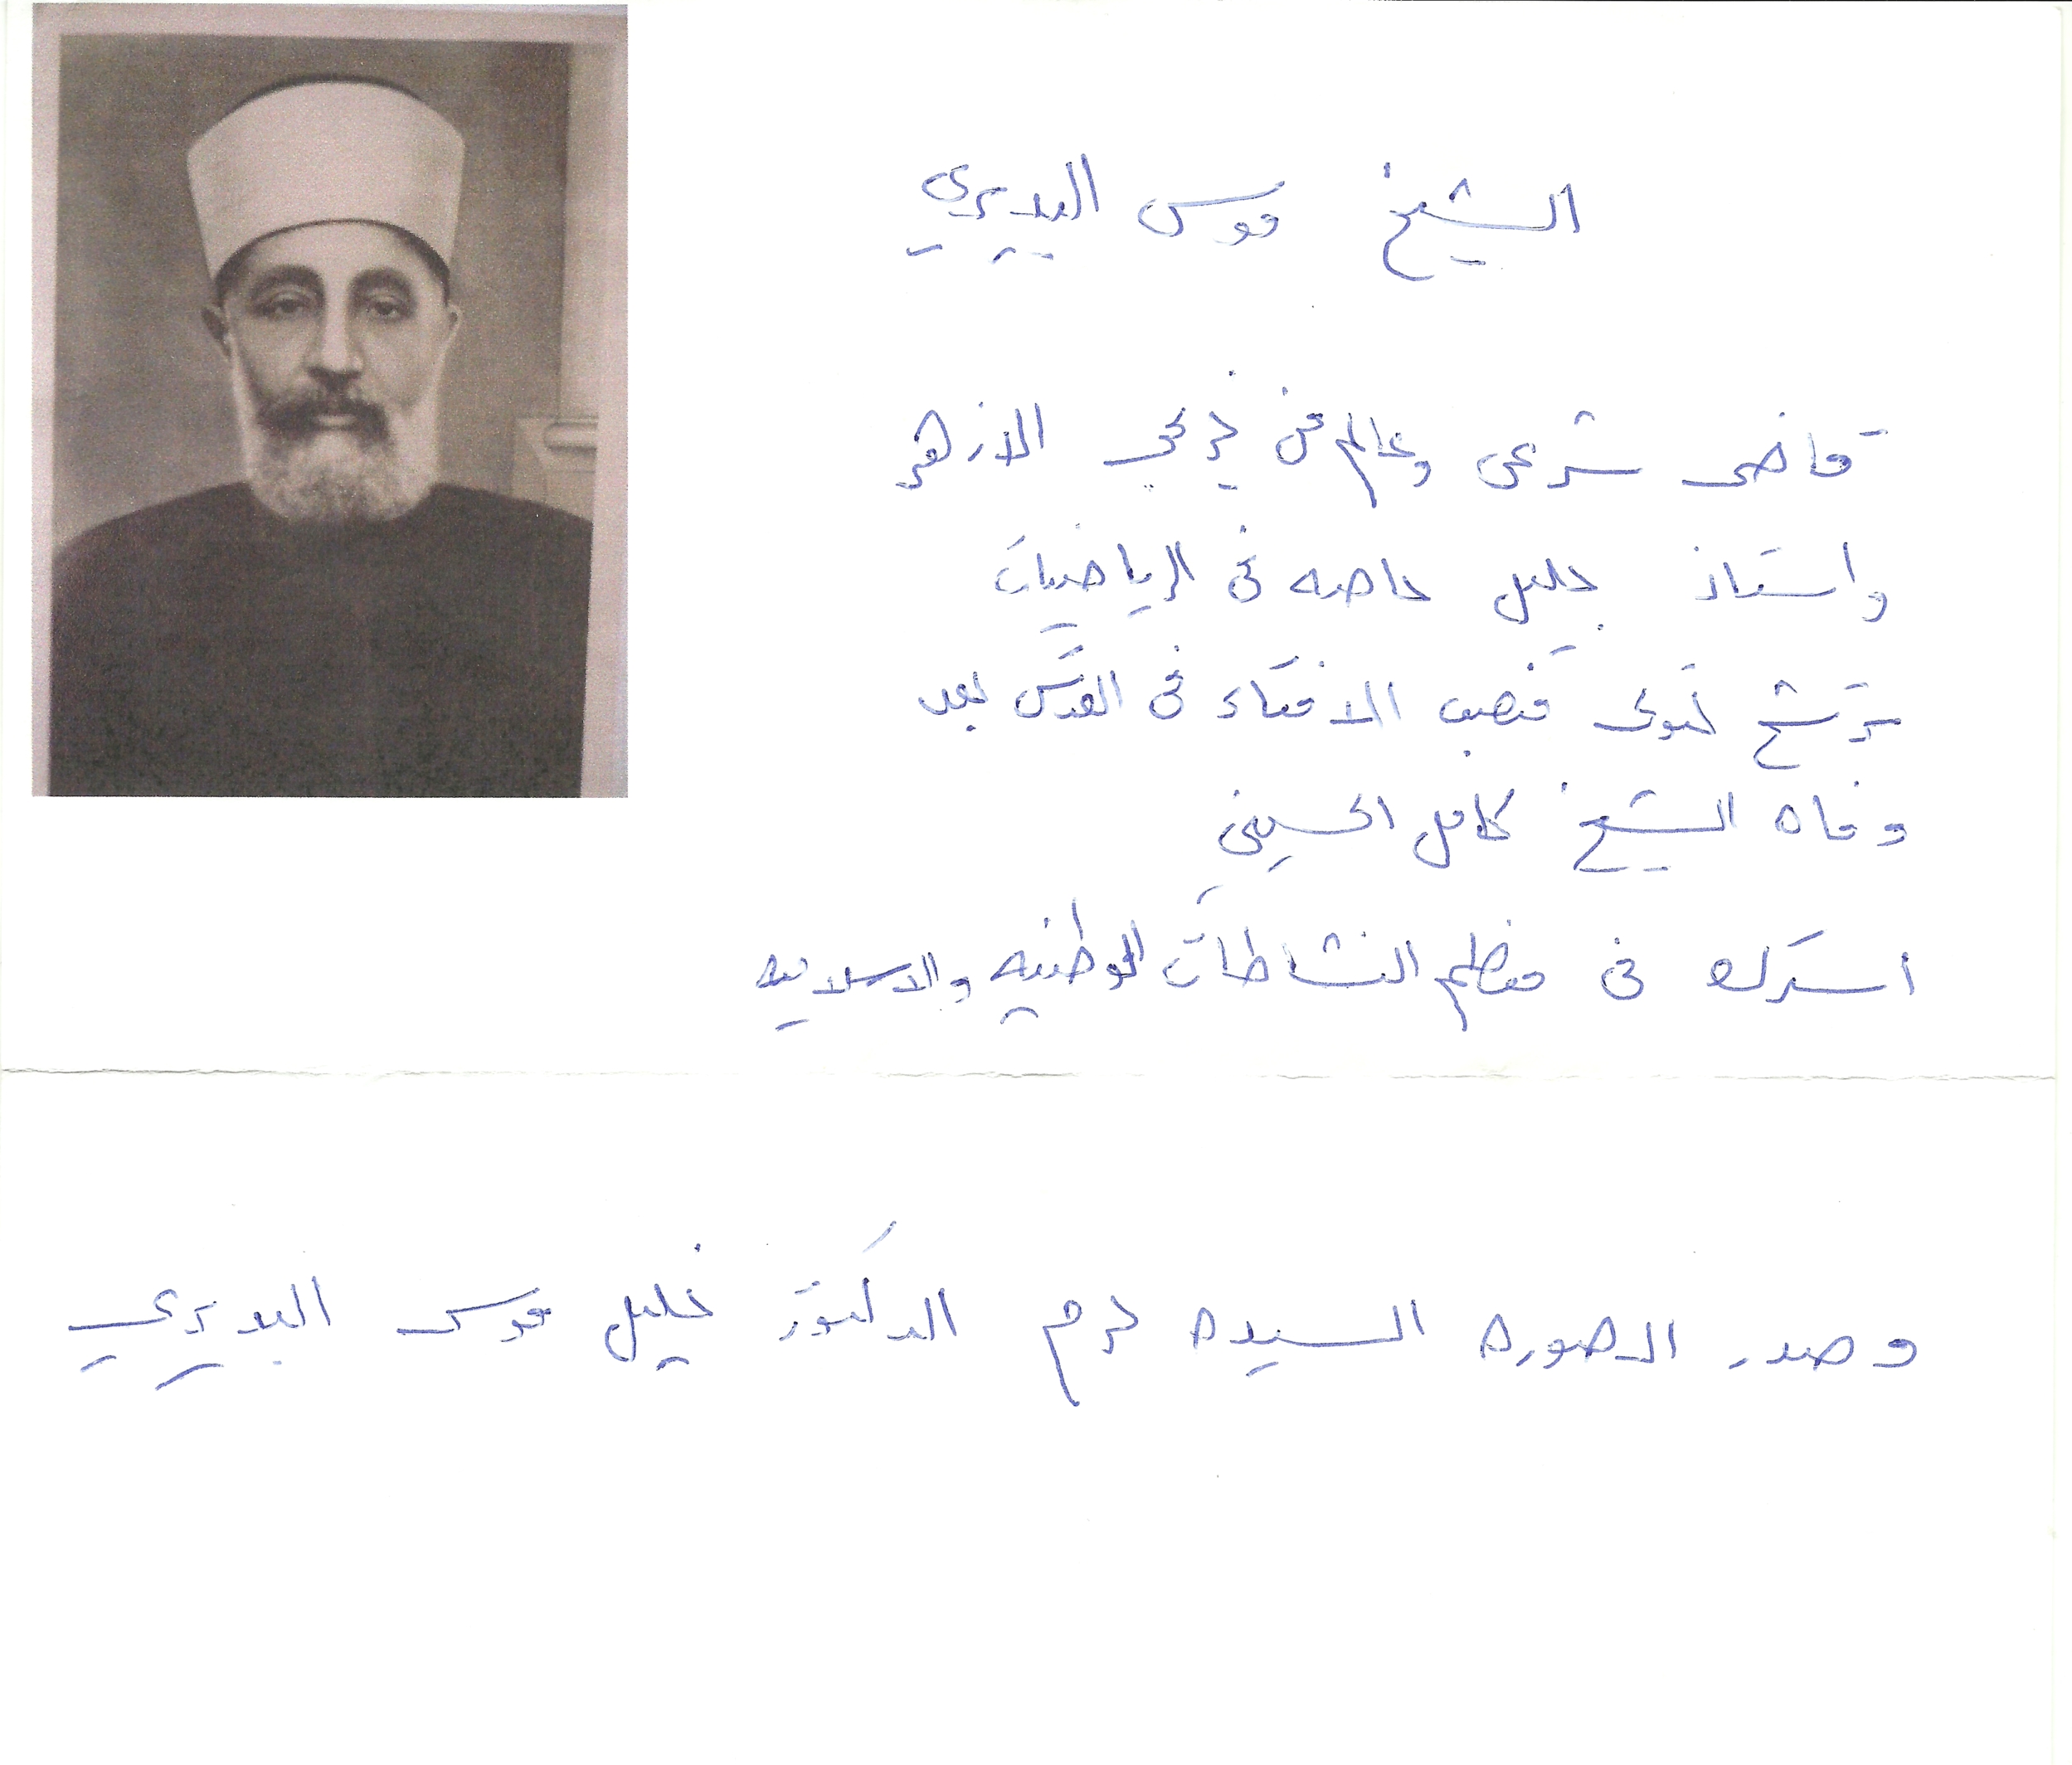 الشيخ موسى البديري
قاضى شرعى وعالم من خريجى الازهر
واستاذ جليل خاصه فى الرياضيات
ترشح لتولى منصب الافتاء فى القدس بعد
وفاه الشيخ كامل الحسينى
اشترك فى معظم النشاطات الوطنيه والاسلاميه
مصدر الصوره السيده حرم الدكتور خليل موسى البديري